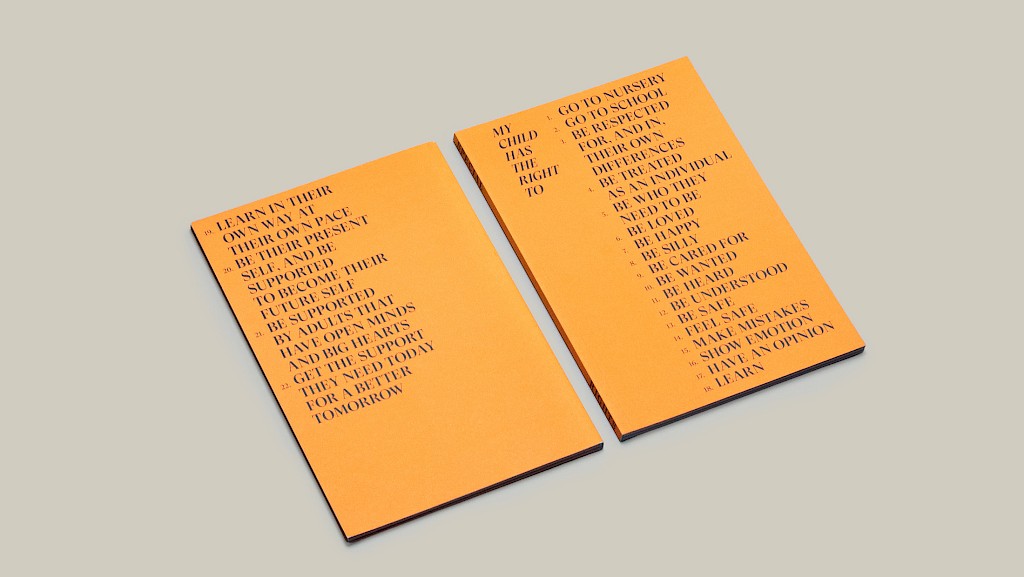 MY
CHILD
HAS
THE
RIGHT
TO
1. GO TO NURSERY
2. GO TO SCHOOL
3. BE RESPECTED
FOR, AND IN,
THEIR OWN
DIFFERENCES
4. BE TREATED
AS AN INDIVIDUAL
5. BE WHO THEY
NEED TO BE
6. BE LOVED
7. BE HAPPY
8. BE SILLY
9. BE CARED FOR
10. BE WANTED
11. BE HEARD
12. BE UNDERSTOOD
13. BE SAFE
14. FEEL SAFE
15. MAKE MISTAKES
16. SHOW EMOTION
17. HAVE AN OPINION
18. LEARN
19. LEARN IN THEIR
OWN WAY AT
THEIR OWN PACE
20. BE THEIR PRESENT
SELF, AND BE
SUPPORTED
TO BECOME THEIR
FUTURE SELF
21. BE SUPPORTED
BY ADULTS THAT
HAVE OPEN MINDS
AND BIG HEARTS
22. GET THE SUPPORT
THEY NEED TODAY
FOR A BETTER
TOMORROW